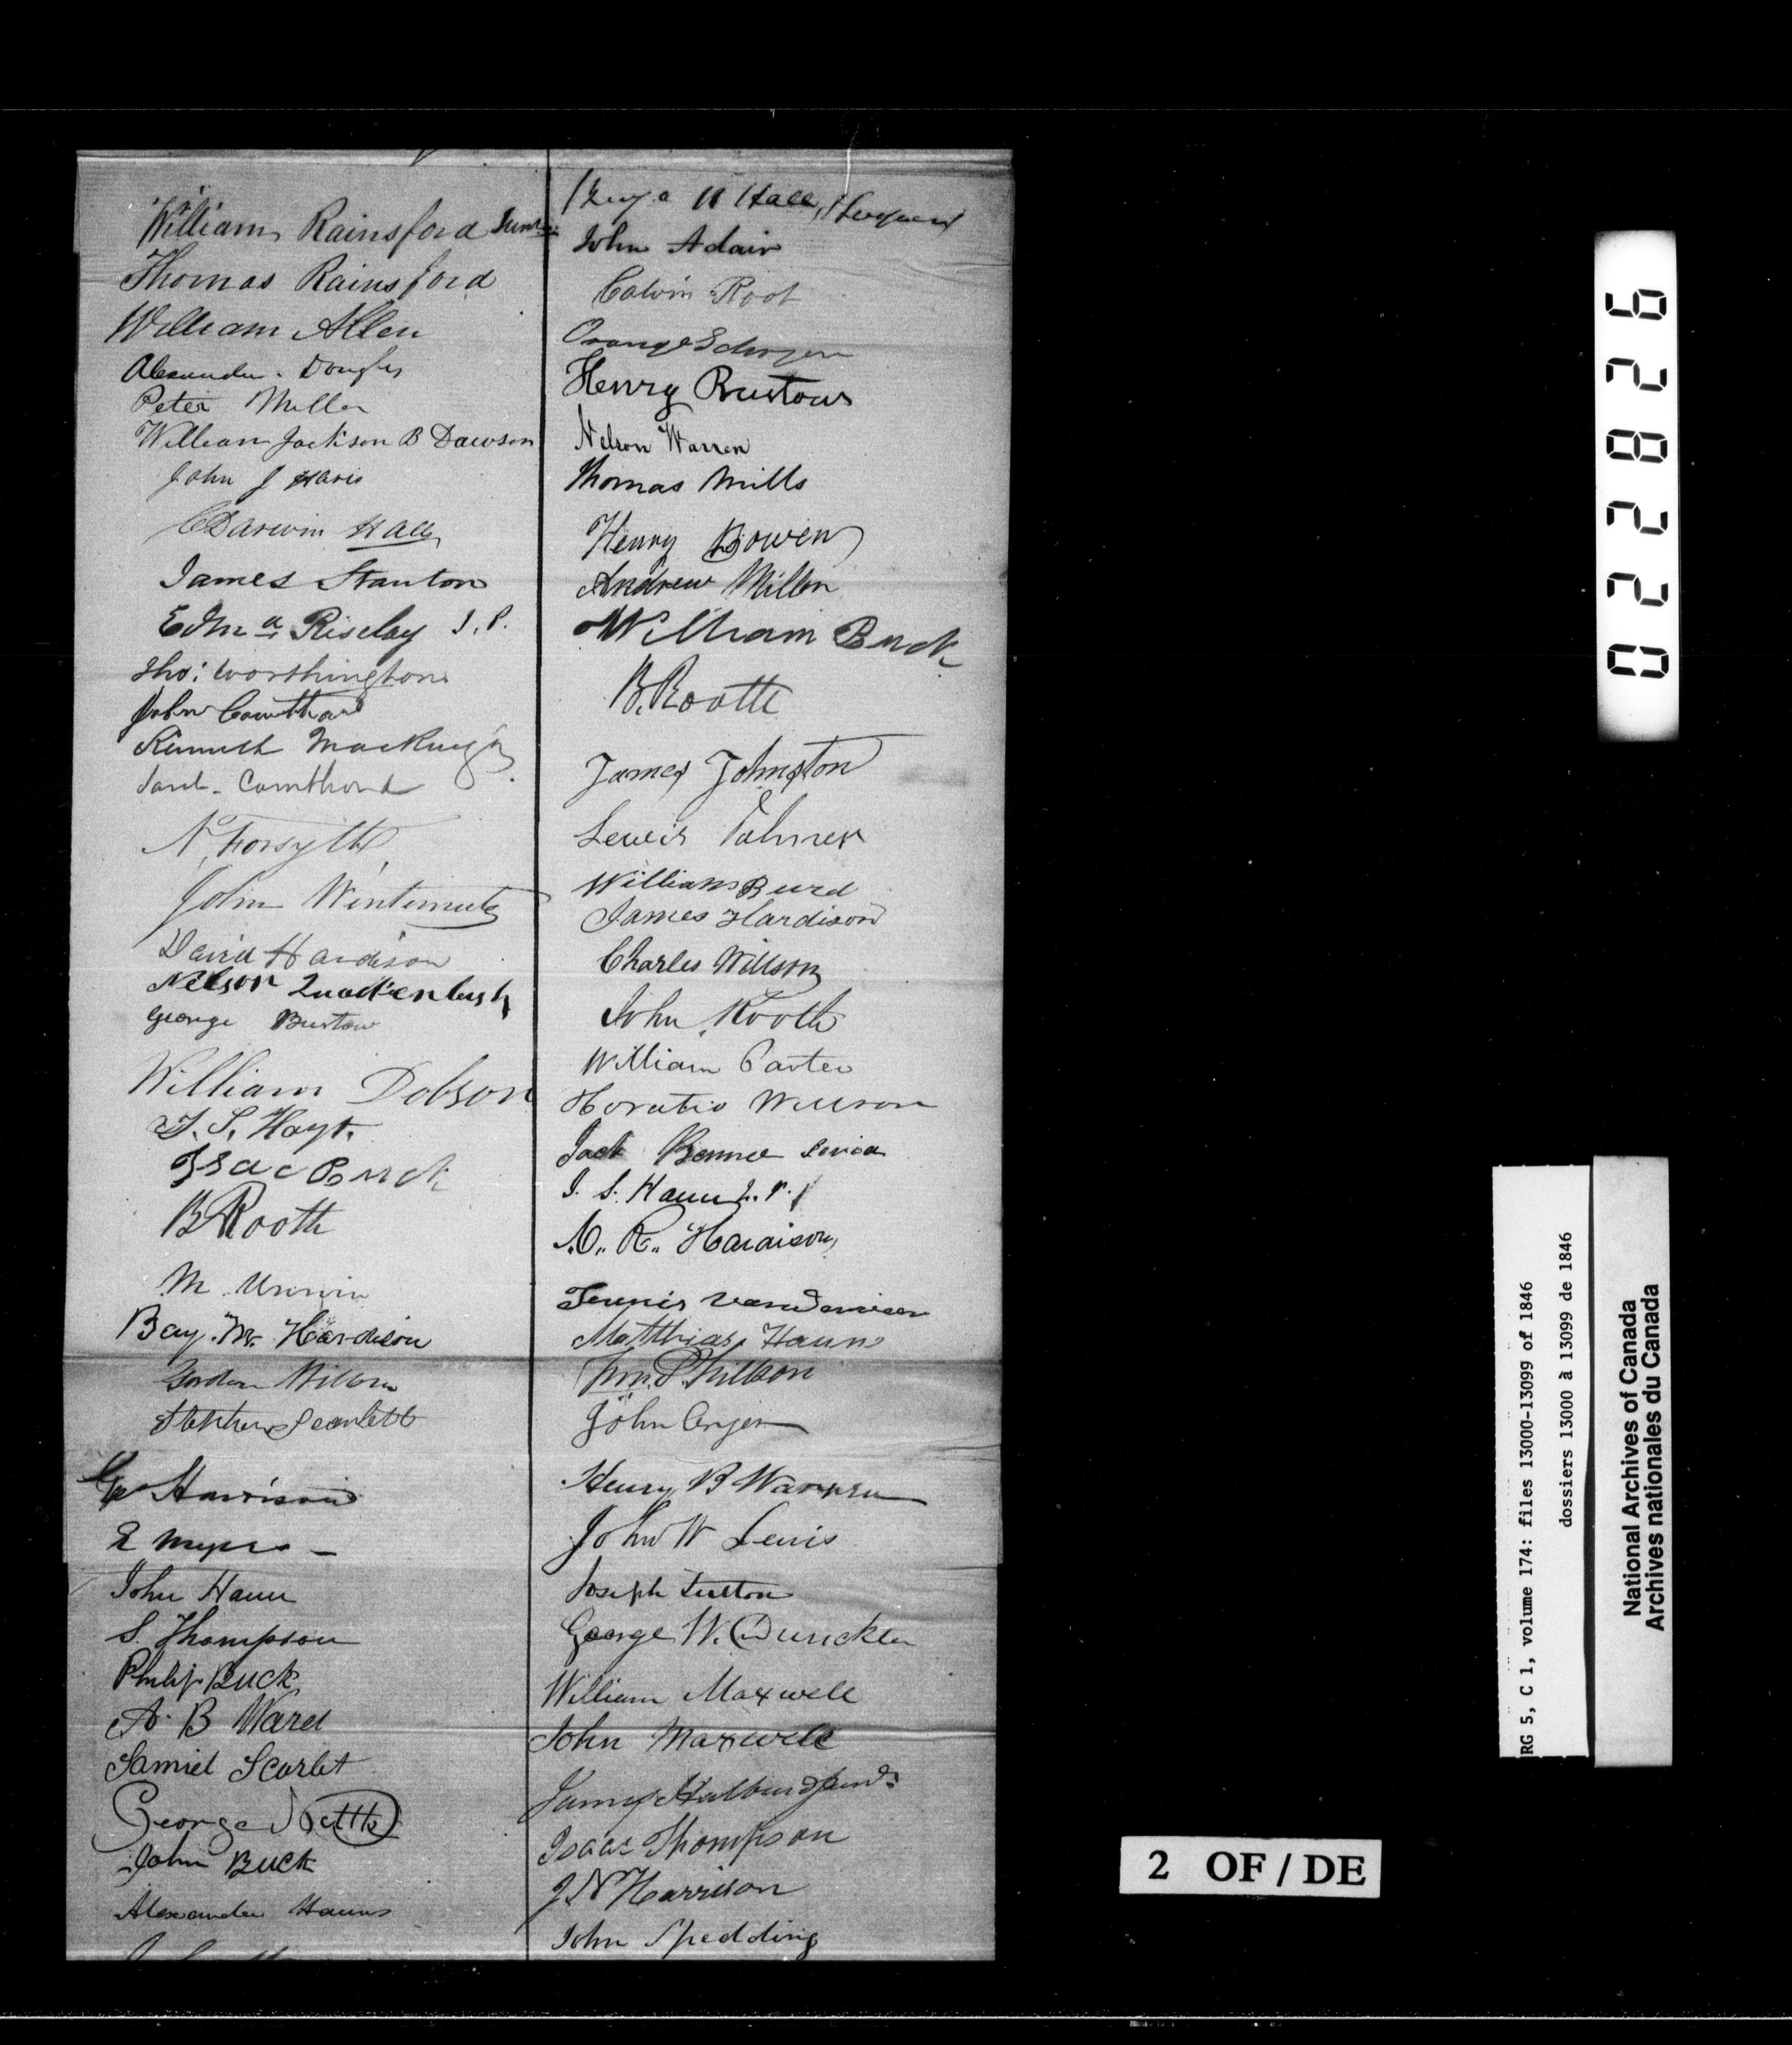 William Rainsford Junr
Thomas Rainsford
William Allen
Alexander Douglas
Peter Miller
William Jackson B Dawson
John J Haris
C Darwin Hall
James Stanton
Edmd Riselay J. P.
Tho: Worthington
John Cawthard
Kenneth MacKenzie
Cawthord
N. Forsyth
John Wintemute
David Hardison
Nelson Quackenbush
George Burtow
William Dobson
T. S. Hoyt.
Isac Buck
B Rooth
M. Unwin
Hardison
Gordon Willson
Stephen Scarlett
Harrison
E Myers
John Haun
S. Thompson
Philip Buck
A. B Ward
Samiel Scarlet
George Nettle
John Buck
Alexander Hauns
Hall
John Adair
Calvin Root
Orange Schryer
Henry Burtows
Nelson Warren
Thomas Mills
Henry Bowen
Andrew Miller
William Buck
B. Rooth
James Johnston
Lewis Palmer
William Burd
James Hardison
Charles Willson
John Rooth
William Carter
Horatio Willson
Jack Bonner
J. S. Haun J. P.
N. R. Hardison
Teunis
Matthias Haun
Willson
John
Henry B Warren
John W Lewis
Joseph Sutton
George W. Dunckler
William Maxwell
John Maxwell
James
Isaac Thompson
J. N Harrison
John Spedding
022826
RG 5, C 1, volume 174: files 13000-13099 of 1846
dossiers 13000 à 13099 de 1846
National Archives of Canada
Archives nationales du Canada
2 OF / DE